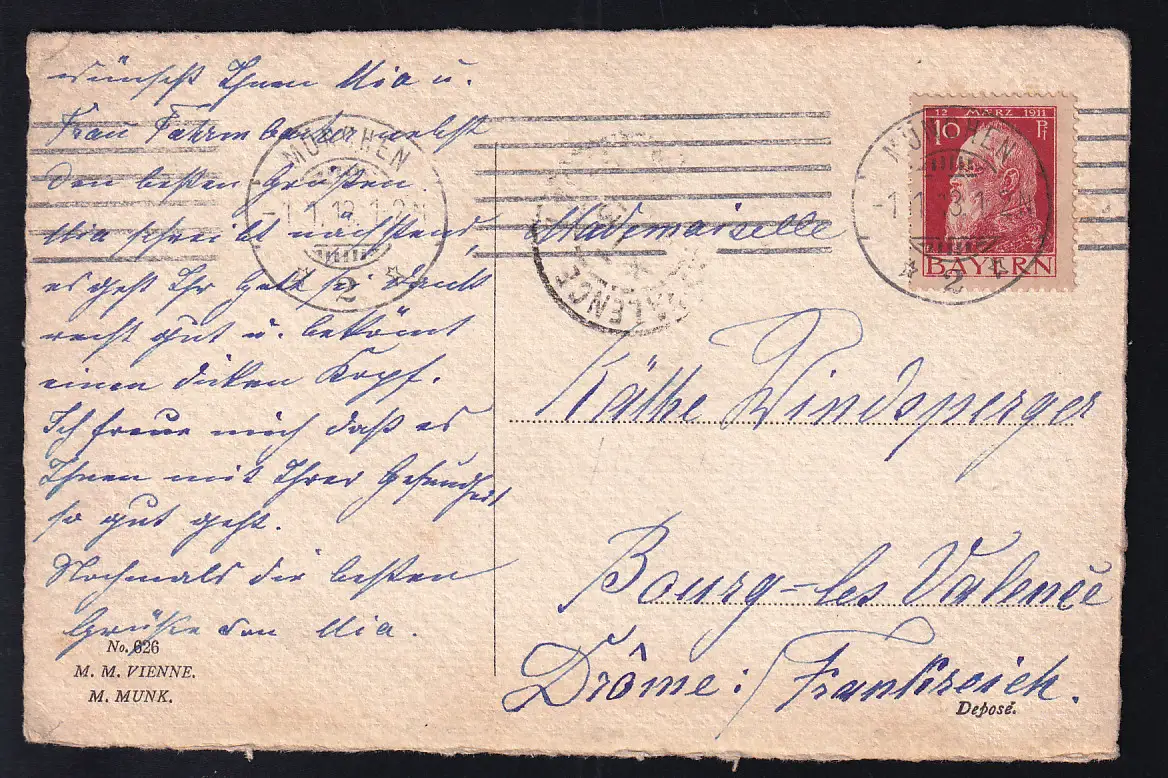 wünscht Ihnen Mia u.
Frau Fahrmbacher nebst
den besten Grüßen.
Mia schreibt nächstens,
es geht Ihr Gott sei Dank
recht gut u. bekömt
einen dicken Kopf.
Ich freue mich daß es
Ihnen mit Ihrer Gesundheit
so gut geht.
Nochmals die besten
Grüße von Mia.
No. 626
M. M. VIENNE.
M. MUNK.
MÜNCHEN
-1.1.13.1-2N
* 2 *
VALENCE
12 MÄRZ 1911
10 Pf
BAYERN
MÜNCHEN
-1.1.13.1-2N
* 2 *
Mademoiselle
Käthe Windsperger
Bourg-les Valence
Drôme: Frankreich.
Deposé.